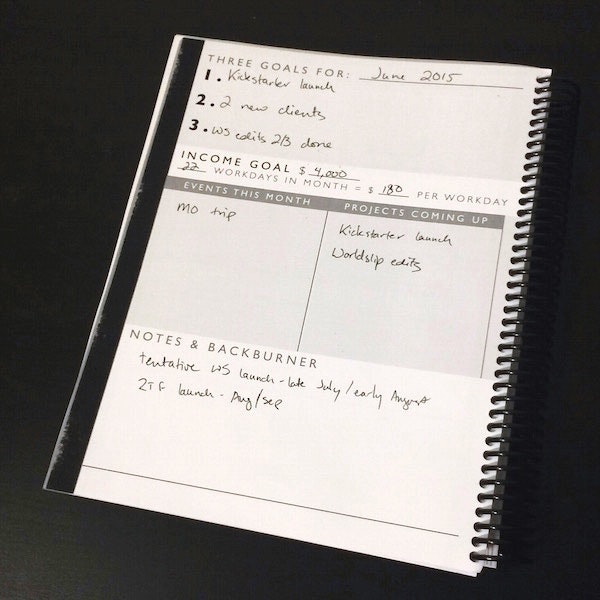 THREE GOALS FOR: June 2015
1. Kickstarter launch
2. 2 new clients
3. WS edits 2/3 done
INCOME GOAL $ 4,000
22 WORKDAYS IN MONTH = $ 180 PER WORKDAY
EVENTS THIS MONTH
MO trip
PROJECTS COMING UP
Kickstarter launch
Worldslip edits
NOTES & BACKBURNER
tentative WS launch - late July / early August
2TF launch - Aug/sep